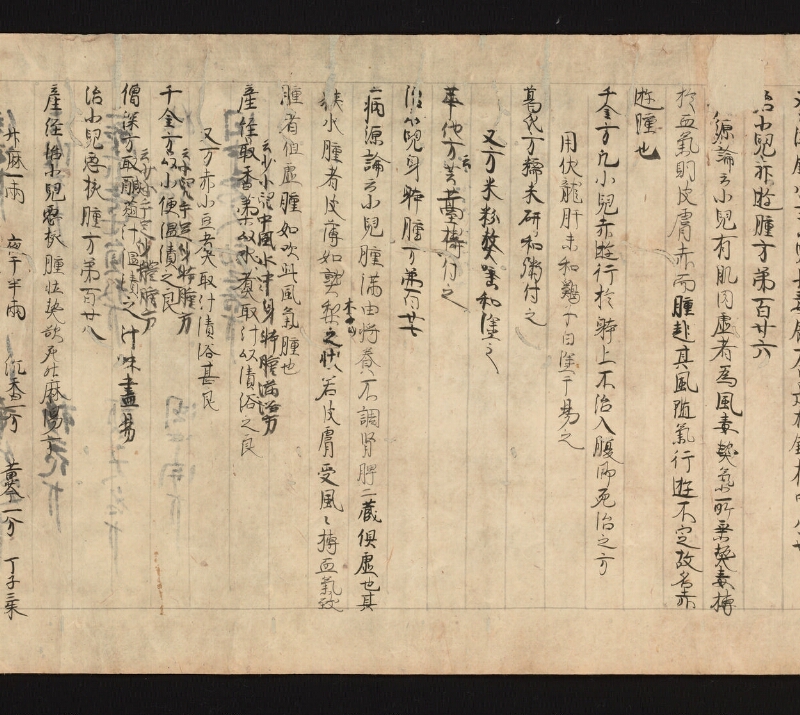 治小兒赤遊腫方第百廿六
病源論云小兒有肌肉虛者為風毒熱氣所乘熱毒搏
於血氣則皮膚赤而腫起其風隨氣行遊不定故名赤
遊腫也
千金方凡小兒赤遊行於體上不治入腹即死治之方
用伏龍肝末和雞子白塗干易之
葛氏方糯米研和粥付之
又方米粉熬唾和塗之
華他方芸薹搗付之
治小兒身腫方第百廿七
病源論云小兒腫滿由將養不調腎脾二藏俱虛也其
挾水腫者皮薄如熟梨之狀若皮膚受風風搏血氣致
腫者但虛腫如吹此風氣腫也
產經云小兒中風水中身體腫滿治方
取香薷以水煮取汁以漬浴之良
又方赤小豆煮取汁漬浴甚良
千金方以小便溫漬之良
僧深方取鹹菹汁溫漬之汁味盡易
治小兒惡核腫方第百廿八
產經治小兒惡核腫壯熱欲死升麻湯方
升麻一兩 夜干半兩 沉香一分 黃芩一分 丁子三朱